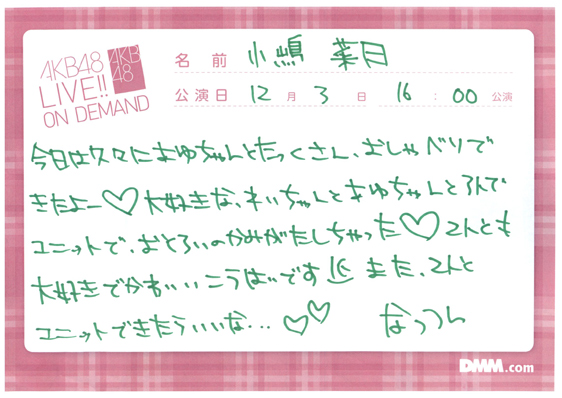 AKB48
LIVE!!
ON DEMAND
AKB
48
名前 小嶋 菜月
公演日 12月3日 16:00 公演
今日は久々にまゆちゃんとたっくさん、おしゃべりで
きたよー♡大好きな、れいちゃんとまゆちゃんと3人で
ユニットで、おそろいのかみがたしちゃった♡2人とも
大好きでかわいいこうはいです また、2人と
ユニットできたらいいな...♡♡ なっつん
DMM.com